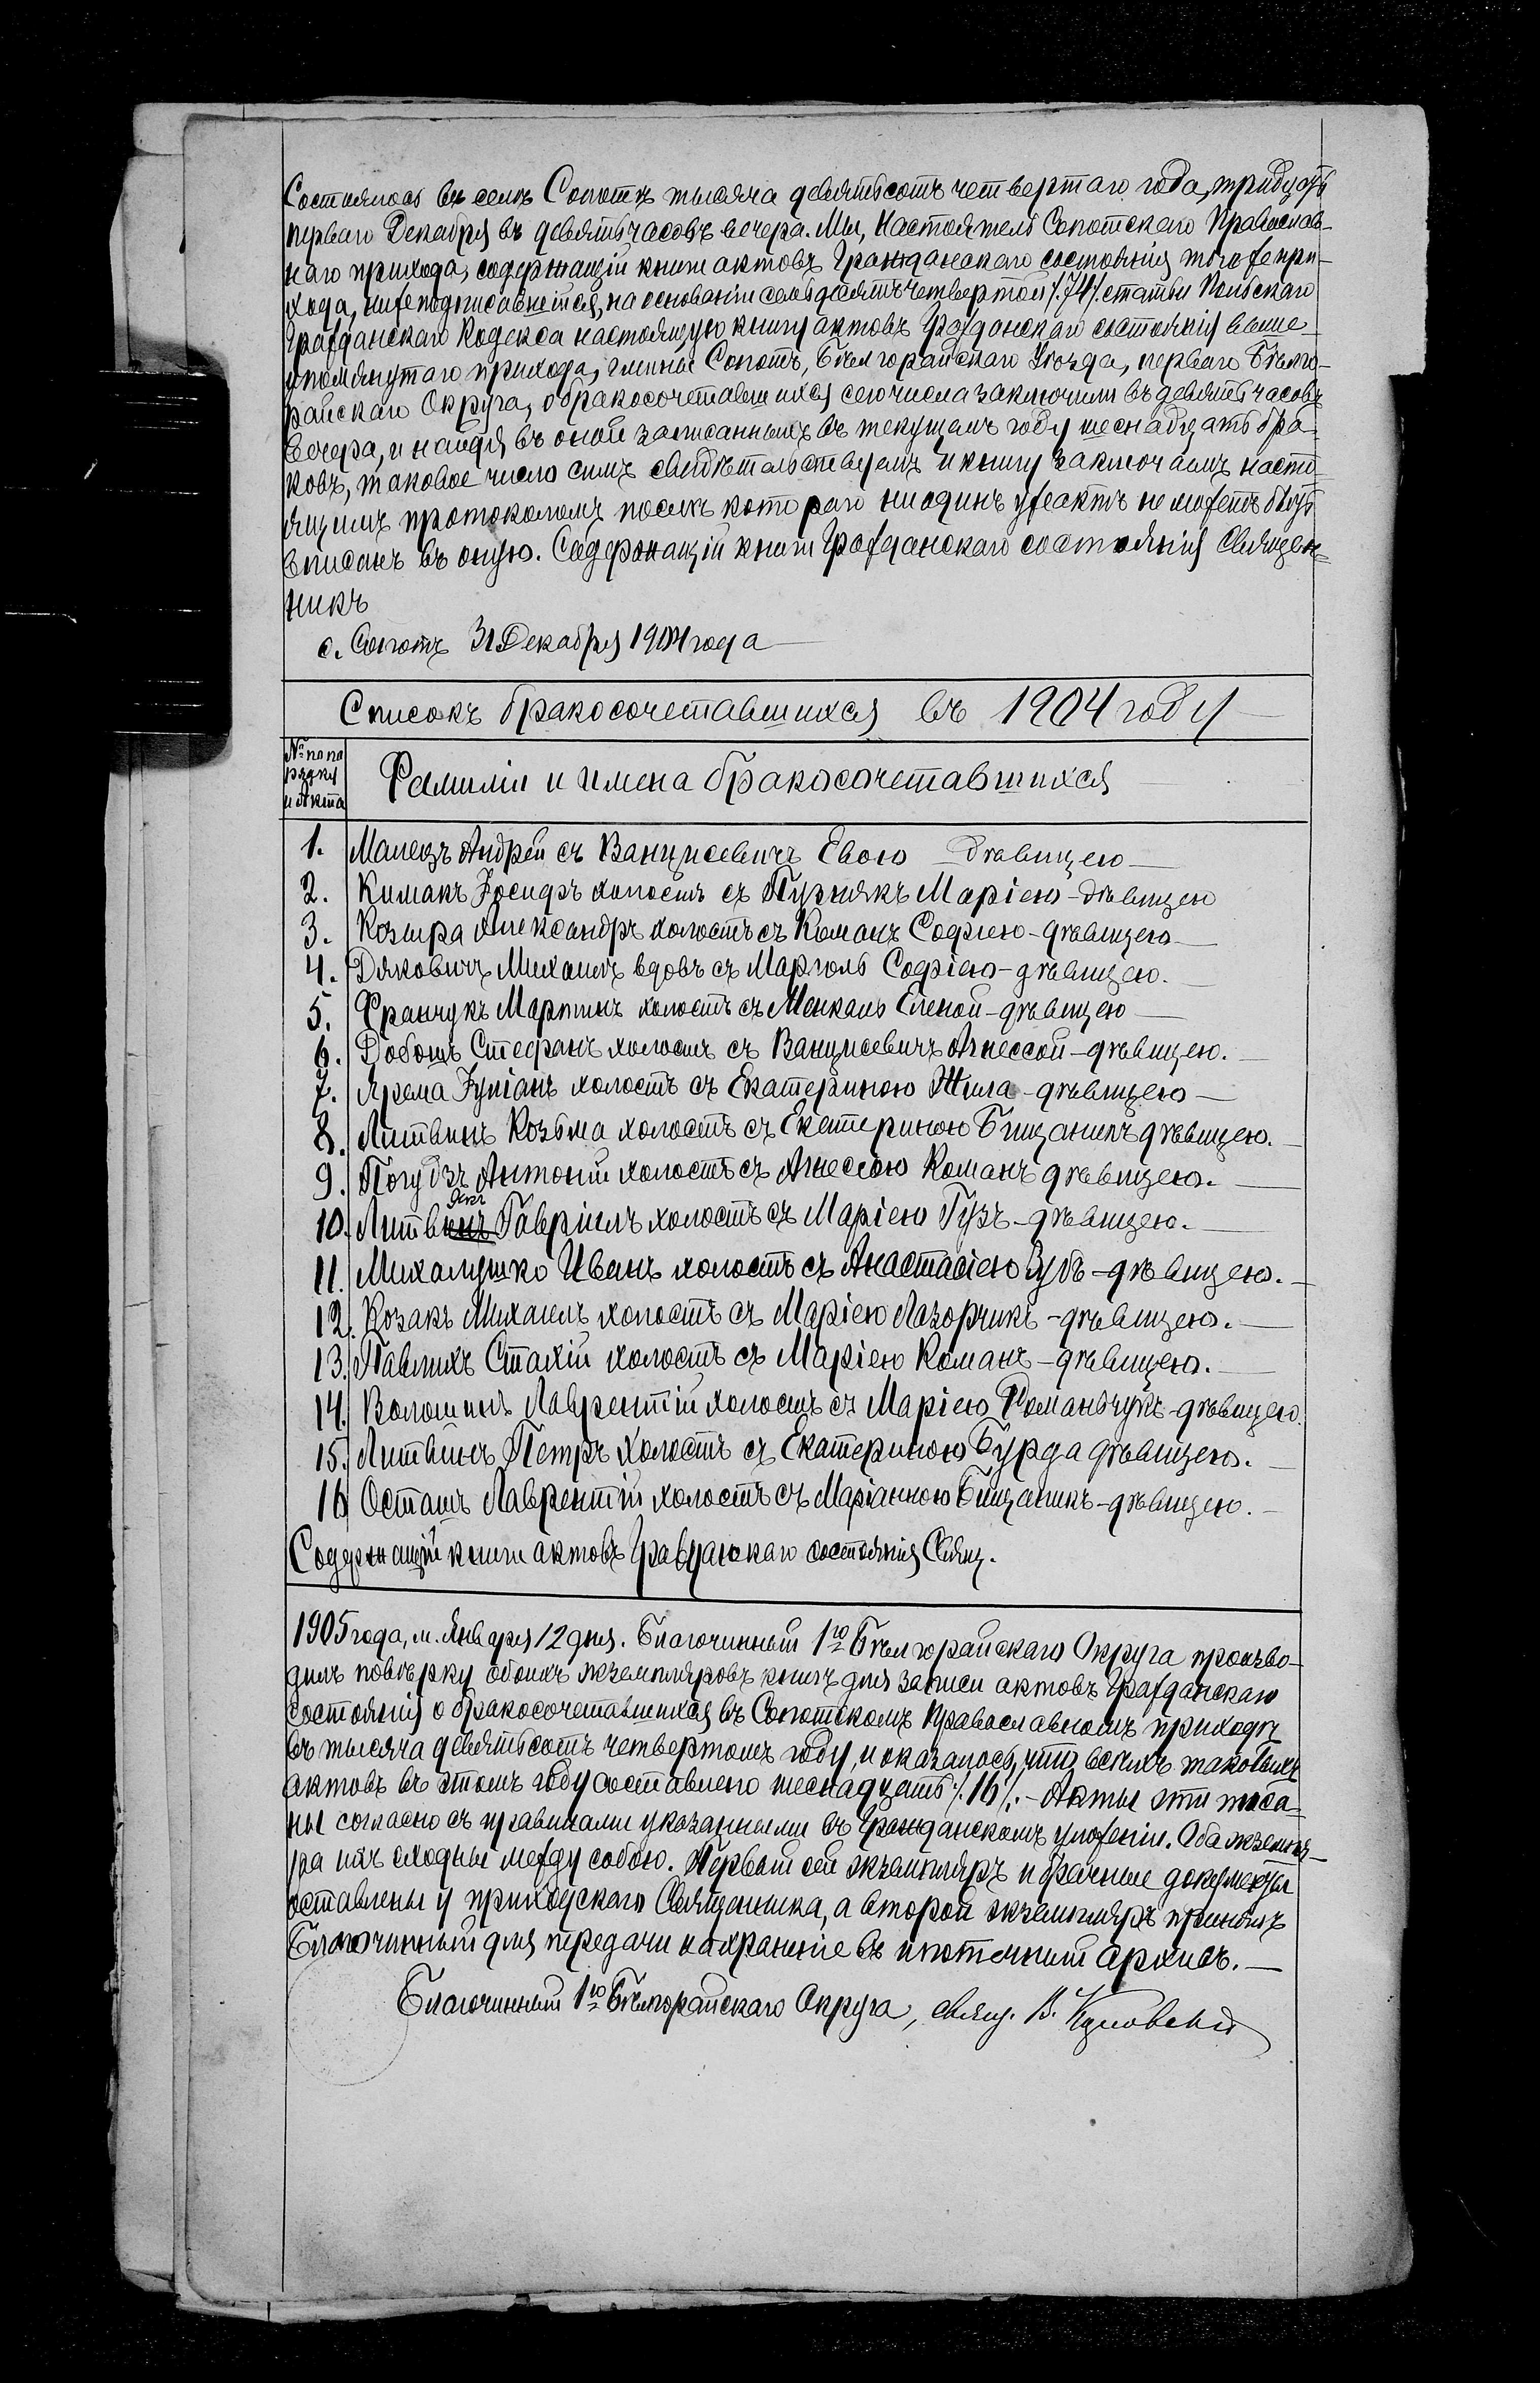 Состоялось въ селѣ Сопотѣ тысяча девятьсотъ четвертаго года, тридцать
перваго Декабря въ девять часовъ вечера. Мы, Настоятель Сопотскаго Православ-
наго прихода, содержащій книги актовъ Гражданскаго состоянія того же при-
хода, нижеподписавшейся, на основаніи семьдесятъ четвертой /74/ статьи Польскаго
Гражданскаго Кодекса настоящую книгу актовъ Гражданскаго состоянія выше
упомянутаго прихода, гмины Сопотъ, Бѣлгорайскаго Уѣзда, перваго Бѣлго-
райскаго Округа, о бракосочетавшихся сего числа заключили въ девять часовъ
вечера, и найдя въ оной записанныхъ въ текущемъ году шеснадцать бра-
ковъ, таковое число симъ свидѣтельствуемъ и книгу заключаемъ насто-
ящимъ протоколомъ послѣ котораго ни одинъ уже актъ не можетъ быть
вписанъ въ оную. Содержащій книги Гражданскаго состоянія Священ-
никъ
с. Сопотъ 31 Декабря 1904 года
Списокъ бракосочетавшихся въ 1904 году
№ по по
рядку
и Акта
Фамиліи и имена бракосочетавшихся
1. Малецъ Андрей съ Ванцисевичъ Евою - дѣвицею
2. Кимакъ Іосифъ холостъ съ Пузнякъ Маріею - дѣвицею
3. Козыра Александръ холостъ съ Команъ Софіею - дѣвицею
4. Дяковичъ Михаилъ вдовъ съ Марголь Софіею - дѣвицею.
5. Франчукъ Мартинъ холостъ съ Менкаль Еленой - дѣвицею
6. Добошъ Стефанъ холостъ съ Ванцисевичъ Агнессой - дѣвицею.
7. Ярема Іуліанъ холостъ съ Екатериною Жила - дѣвицею
8. Литвинъ Козьма холостъ съ Екатериною Бищаникъ дѣвицею.
9. Погудзъ Антоній холостъ съ Агнесою Команъ дѣвицею.
10. Литвинъ Гавріилъ холостъ съ Маріею Гузъ - дѣвицею.
11. Михалушко Иванъ холостъ съ Анастасіею Зубъ - дѣвицею.
12. Козакъ Михаилъ холостъ съ Маріею Лазорчикъ - дѣвицею.
13. Павлихъ Стахій холостъ съ Маріею Команъ - дѣвицею.
14. Волошинъ Лаврентій холостъ съ Маріею Романчукъ - дѣвицею.
15. Литвинъ Петръ холостъ съ Екатериною Бурда дѣвицею.
16 Осташъ Лаврентій холостъ съ Маріанною Бищаникъ - дѣвицею.
Содержащій книги актовъ Гражданскаго состоянія Свящ.
1905 года, м. Января 12 дня. Благочинный 1го Бѣлгорайскаго Округа произво-
дилъ повѣрку обоихъ экземпляровъ книгъ для записи актовъ Гражданскаго
состоянія о бракосочетавшихся въ Сопотскомъ Православномъ приходѣ
въ тысяча девятьсотъ четвертомъ году, и оказалось, что всѣхъ таковыхъ
актовъ въ этомъ году составлено шеснадцать /16/. - Акты эти писа-
ны согласно съ правилами указанными въ Гражданскомъ уложеніи. Оба экземпля-
ра ихъ сходны между собою. Первый сей экземпляръ и брачные документы
оставлены у приходскаго Священника, а второй экземпляръ принялъ
Благочинный для передачи на храненіе въ ипотечный архивъ.
Благочинный 1го Бѣлгорайскаго Округа, свящ. В.